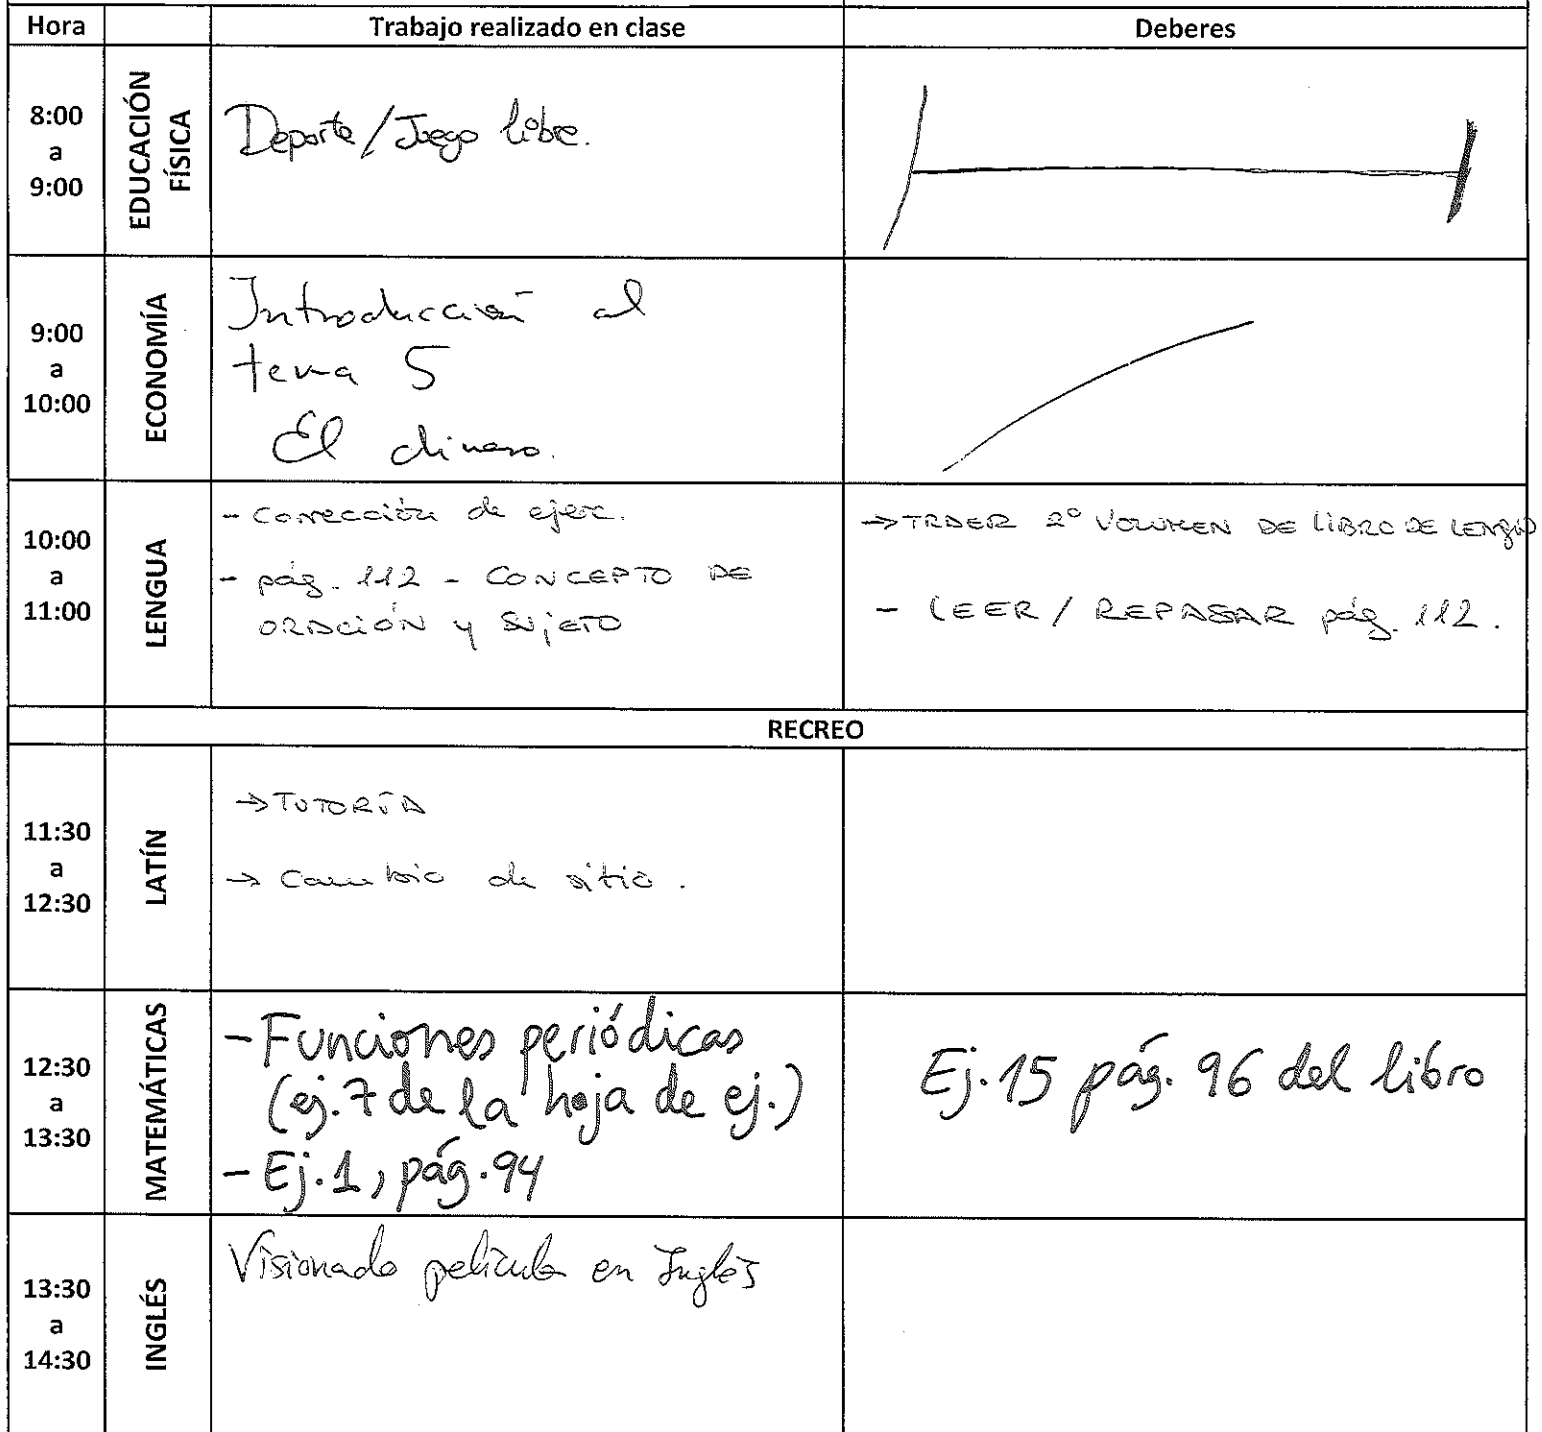 Hora Trabajo realizado en clase Deberes
8:00
a
9:00
EDUCACIÓN
FÍSICA
Deporte/Juego libre.
9:00
a
10:00
ECONOMÍA
Introducción al
tema 5
El dinero.
10:00
a
11:00
LENGUA
- Corrección de ejerc.
- pág. 112 - CONCEPTO DE
ORACIÓN y SUJETO
→ TRAER 2º VOLUMEN DE LIBRO DE LENGUA
- LEER / REPASAR pág. 112.
RECREO
11:30
a
12:30
LATÍN
→ TUTORÍA
→ Cambio de sitio.
12:30
a
13:30
MATEMÁTICAS
- Funciones periódicas
(ej. 7 de la hoja de ej.)
- Ej. 1, pág. 94
Ej. 15 pág. 96 del libro
13:30
a
14:30
INGLÉS
Visionado película en Inglés